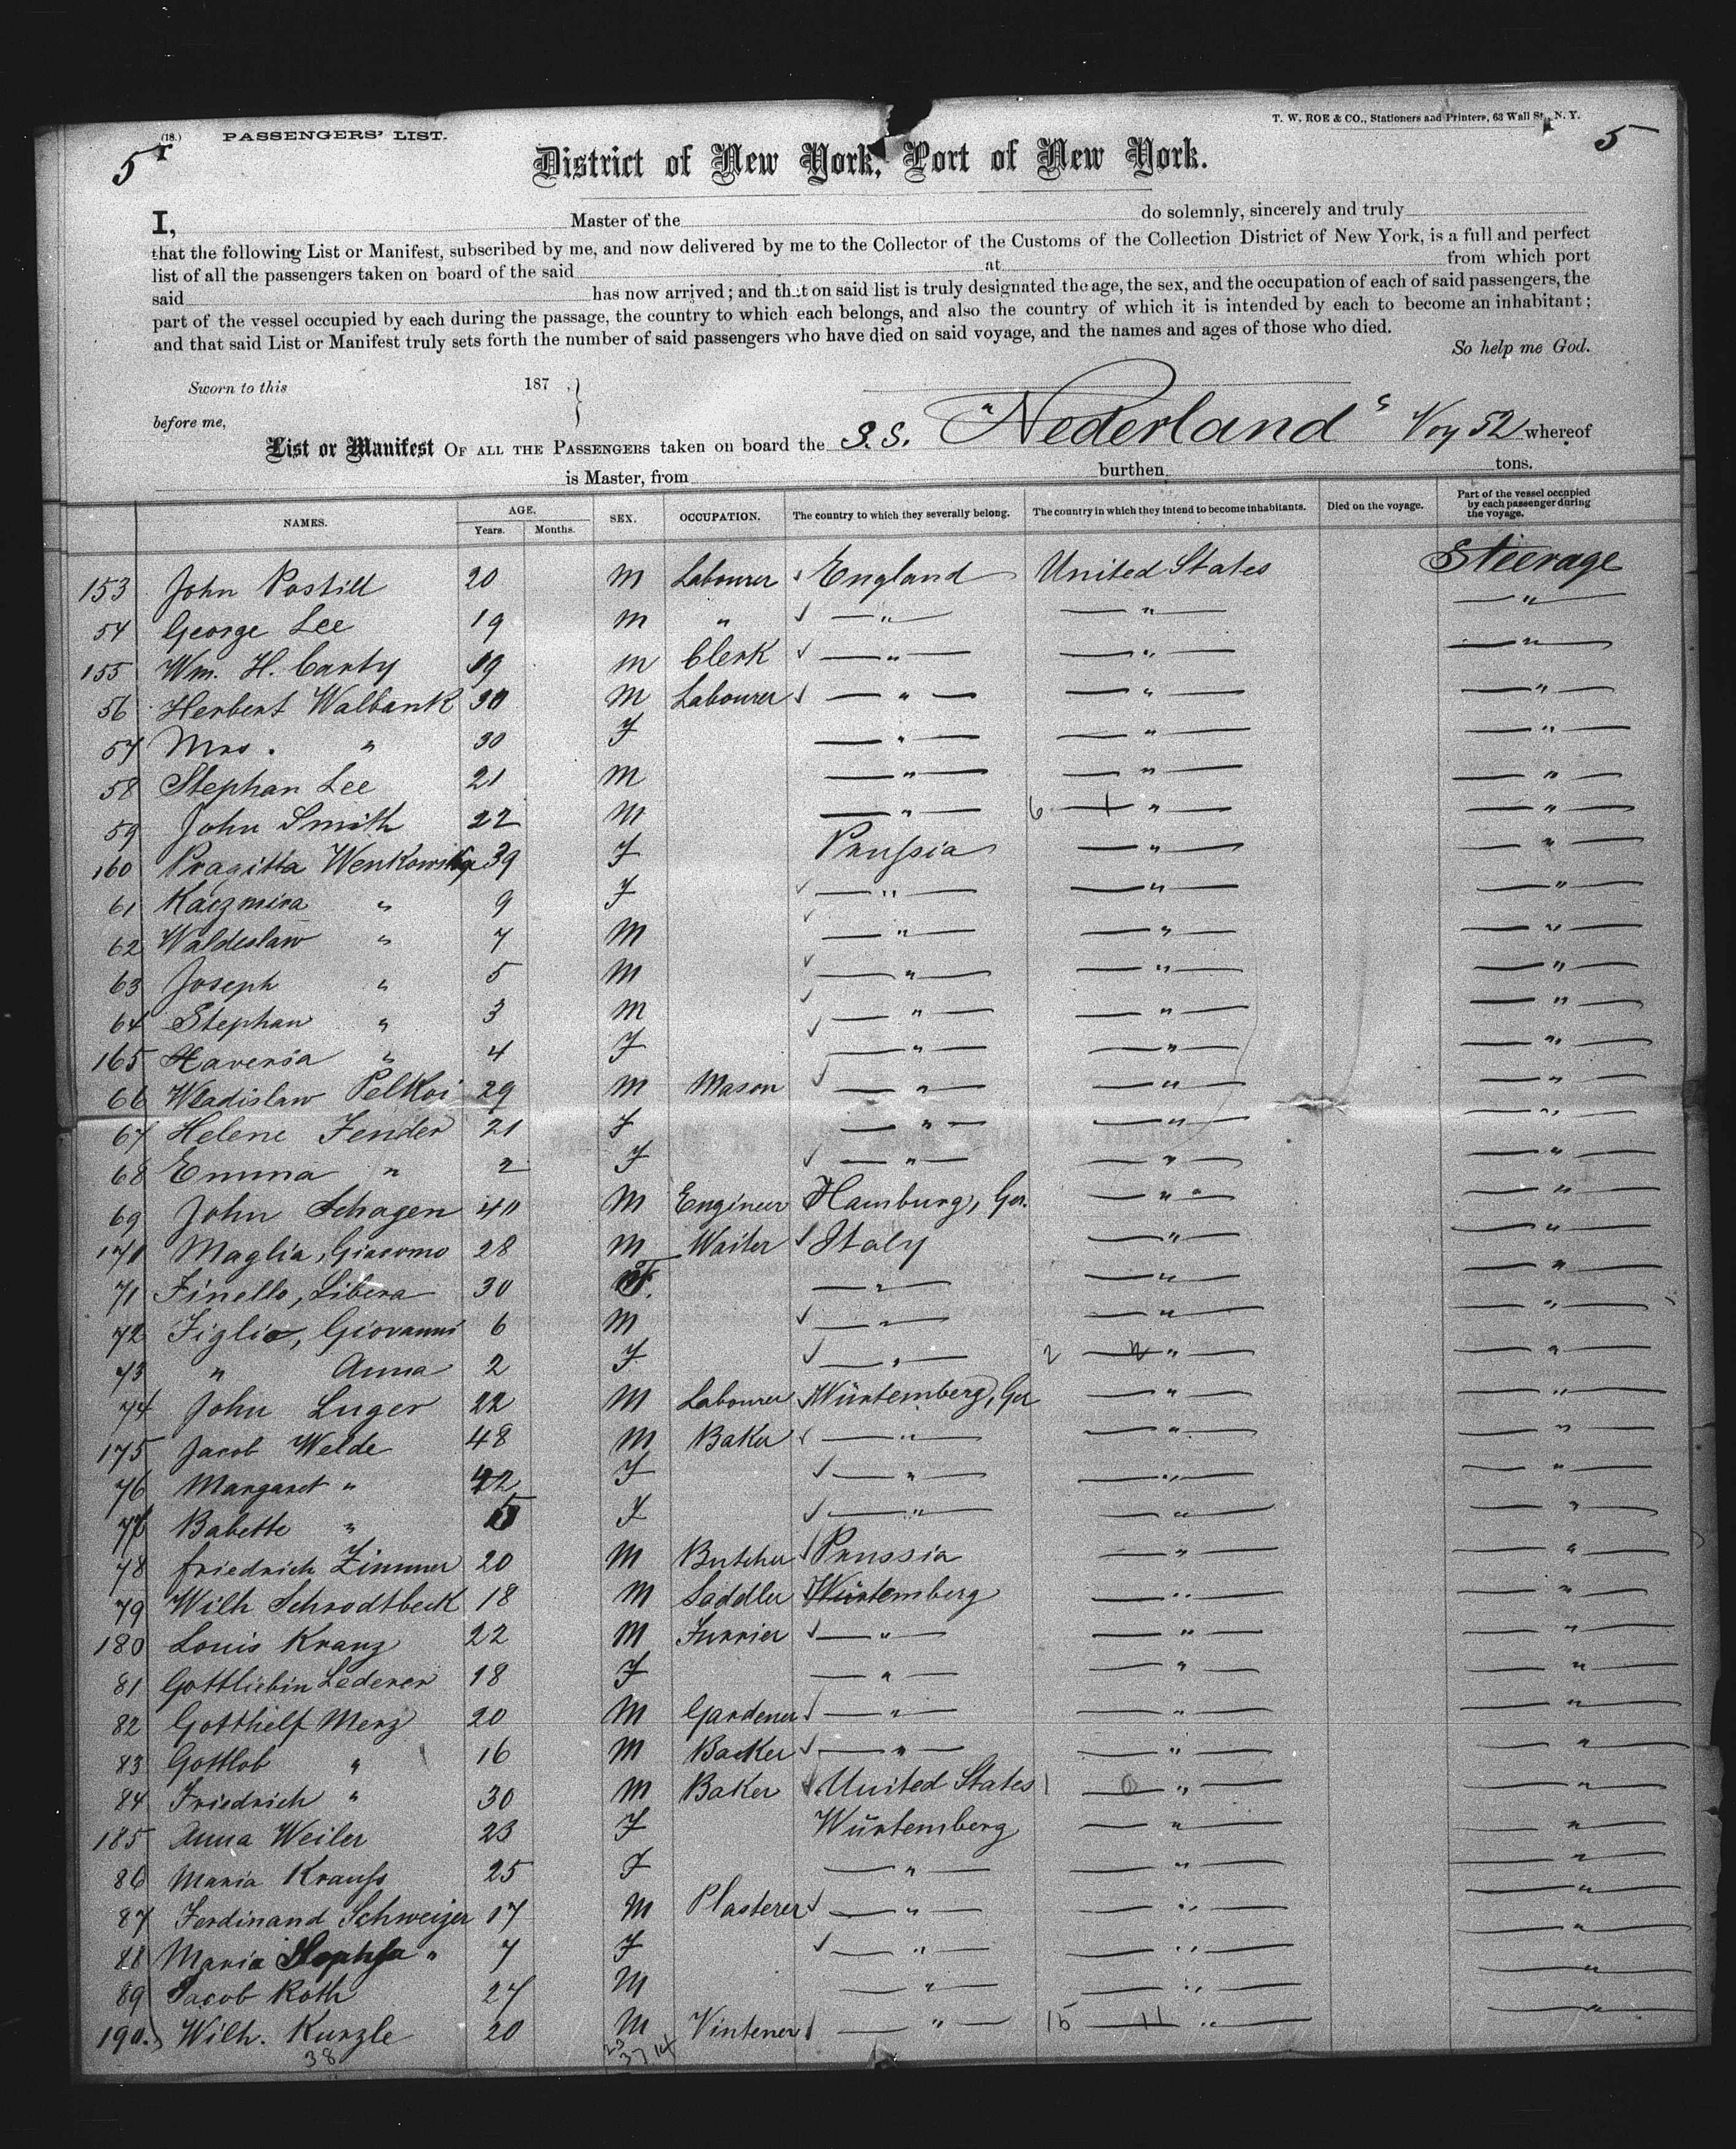 (18.) PASSENGERS' LIST. T. W. ROE & CO., Stationers and Printers, 63 Wall St., N. Y.
5 5
District of New York, Port of New York.
I, Master of the do solemnly, sincerely and truly
that the following List or Manifest, subscribed by me, and now delivered by me to the Collector of the Customs of the Collection District of New York, is a full and perfect
list of all the passengers taken on board of the said at from which port
said has now arrived; and that on said list is truly designated the age, the sex, and the occupation of each of said passengers, the
part of the vessel occupied by each during the passage, the country to which each belongs, and also the country of which it is intended by each to become an inhabitant;
and that said List or Manifest truly sets forth the number of said passengers who have died on said voyage, and the names and ages of those who died.
So help me God.
Sworn to this 187 , }
before me,
List or Manifest OF ALL THE PASSENGERS taken on board the S.S. "Nederland" Voy 52 whereof
is Master, from burthen tons.
NAMES. AGE. Years. Months. SEX. OCCUPATION. The country to which they severally belong. The country in which they intend to become inhabitants. Died on the voyage. Part of the vessel occupied by each passenger during the voyage.
153 John Postill 20 M Labourer England United States Steerage
54 George Lee 19 M " " " "
155 Wm. H. Carty 19 M Clerk " " "
56 Herbert Walbank 30 M Labourer " " "
57 Mrs. " 30 F " " "
58 Stephan Lee 21 M " " "
59 John Smith 22 M " 6 1 " "
160 Pragitta Wenkowska 39 F Prussia " "
61 Kaczmira " 9 F " " "
62 Waldeslaw " 7 M " " "
63 Joseph " 5 M " " "
64 Stephan " 3 M " " "
165 Xaveria " 4 F " " "
66 Wladislaw Pelkoi 29 M Mason " " "
67 Helene Fender 21 F " " "
68 Emma " 2 F " " "
69 John Schagen 40 M Engineer Hamburg, Ger. " "
170 Maglia, Giacomo 28 M Waiter Italy " "
71 Finello, Libera 30 F. " " "
72 Figlio, Giovanni 6 M " " "
73 " Anna 2 F " 2 " "
74 John Luger 22 M Labourer Würtemberg, Ger " "
175 Jacob Welde 48 M Baker " " "
76 Margaret " 42 F " " "
77 Babette " 5 F " " "
78 Friedrich Zimmer 20 M Butcher Prussia " "
79 Wilh Schrodtbeck 18 M Saddler Würtemberg " "
180 Louis Kranz 22 M Furrier " " "
81 Gottliebin Lederer 18 F " " "
82 Gotthielf Merz 20 M Gardener " " "
83 Gottlob " 16 M Backer " " "
84 Friedrich " 30 M Baker United States 1 0 " "
185 Anna Weiler 23 F Würtemberg " "
86 Maria Krauss 25 F " " "
87 Ferdinand Schweizer 17 M Plasterer " " "
88 Maria " 7 F " " "
89 Jacob Roth 27 M " " "
190. Wilh. Kurzle 20 M Vintener " 15 11 " "
38 23 37 14